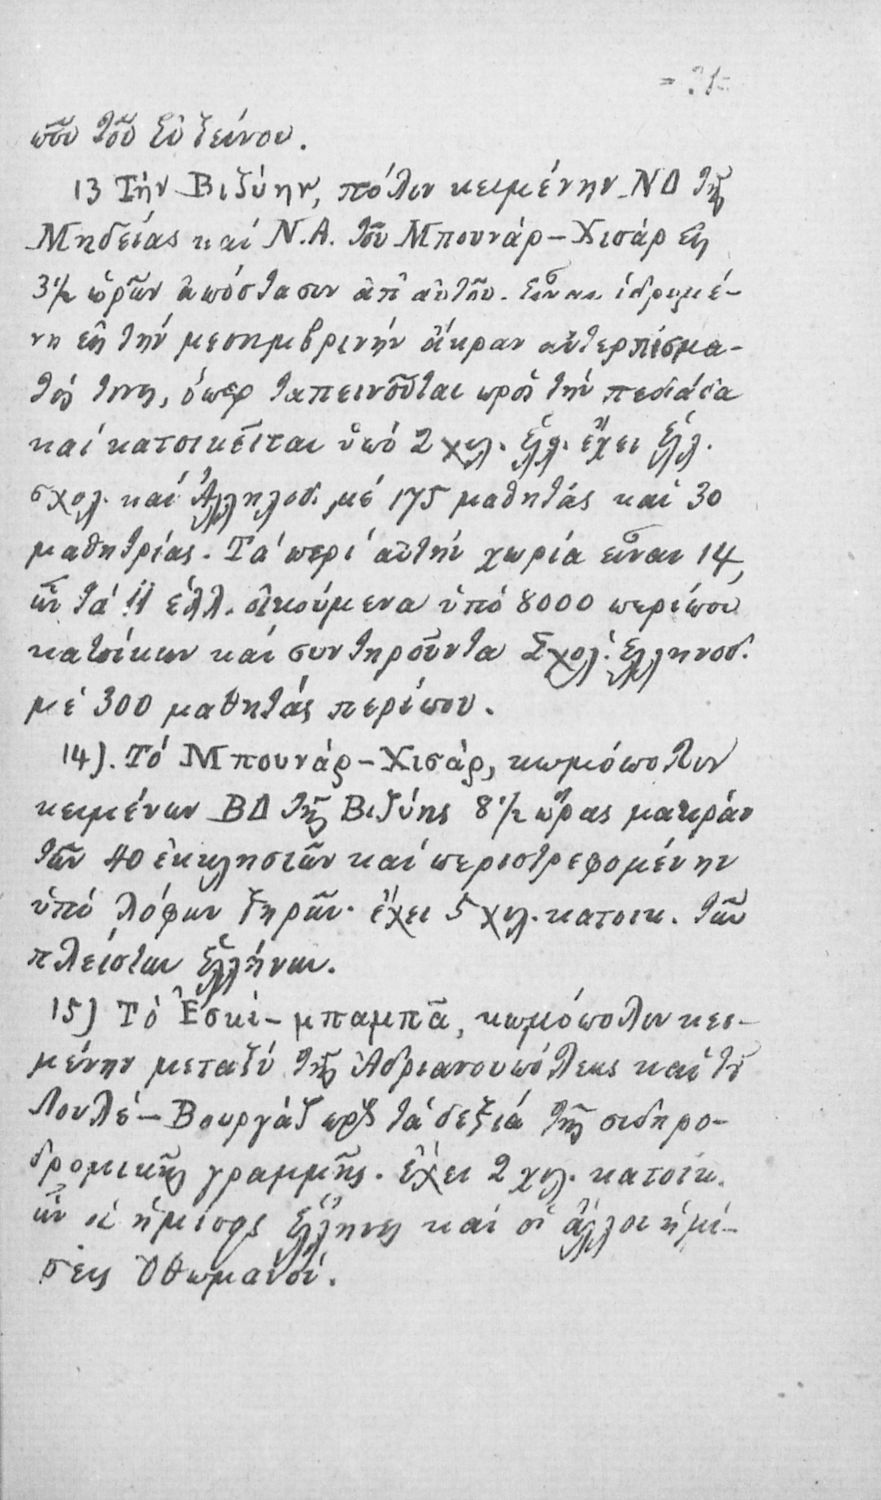 =31=
που τοῦ Εὐξείνου.
13 Τὴν Βιζύην, πόλιν κειμένην ΝΔ τῆς
Μηδείας καὶ Ν.Α. τοῦ Μπουνάρ-Χισάρ εἰς
3½ ὡρῶν ἀπόστασιν ἀπ' αὐτοῦ. Εἶναι ἱδρυμέ-
νη εἰς τὴν μεσημβρινὴν ἄκραν ἀντερείσμα-
τός τινος, ὅπερ ταπεινοῦται πρὸς τὴν πεδιάδα
καὶ κατοικεῖται ὑπὸ 2 χιλ. Ἑλλ. ἔχει Ἑλλ.
σχολ. καὶ Ἀλληλοδ. μὲ 175 μαθητὰς καὶ 30
μαθητρίας. Τὰ περὶ αὐτὴν χωρία εἶναι 14,
ὧν τὰ 11 ἑλλ. οἰκούμενα ὑπὸ 8000 περίπου
κατοίκων καὶ συντηροῦντα Σχολ. Ἑλληνοδ.
μὲ 300 μαθητὰς περίπου.
14). Τὸ Μπουνάρ-Χισάρ, κωμόπολιν
κειμένην ΒΔ τῆς Βιζύης 8½ ὥρας μακρὰν
τῶν 40 ἐκκλησιῶν καὶ περιστρεφομένην
ὑπὸ λόφων ξηρῶν. ἔχει 5 χιλ. κατοικ. τῶν
πλείστων Ἑλλήνων.
15) Τὸ Ἐσκὶ-μπαμπᾶ, κωμόπολιν κει-
μένην μεταξὺ τῆς Ἀδριανουπόλεως καὶ τοῦ
Λουλὲ-Βουργὰζ πρὸς τὰ δεξιὰ τῆς σιδηρο-
δρομικῆς γραμμῆς. ἔχει 2 χιλ. κατοικ.
ὧν οἱ ἡμίσεις Ἕλληνες καὶ οἱ ἄλλοι ἡμί-
σεις Ὀθωμανοί.